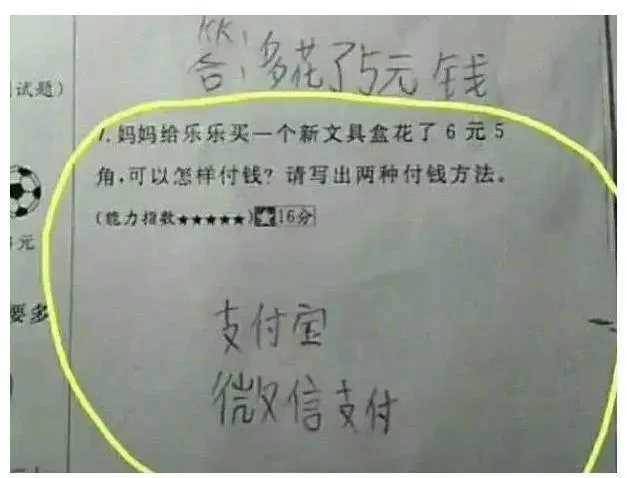 KK
答:多花了5元钱
试题)
7.妈妈给乐乐买一个新文具盒花了6元5
角,可以怎样付钱?请写出两种付钱方法。
(能力指数★★★★★)16分
元
要多
支付宝
微信支付